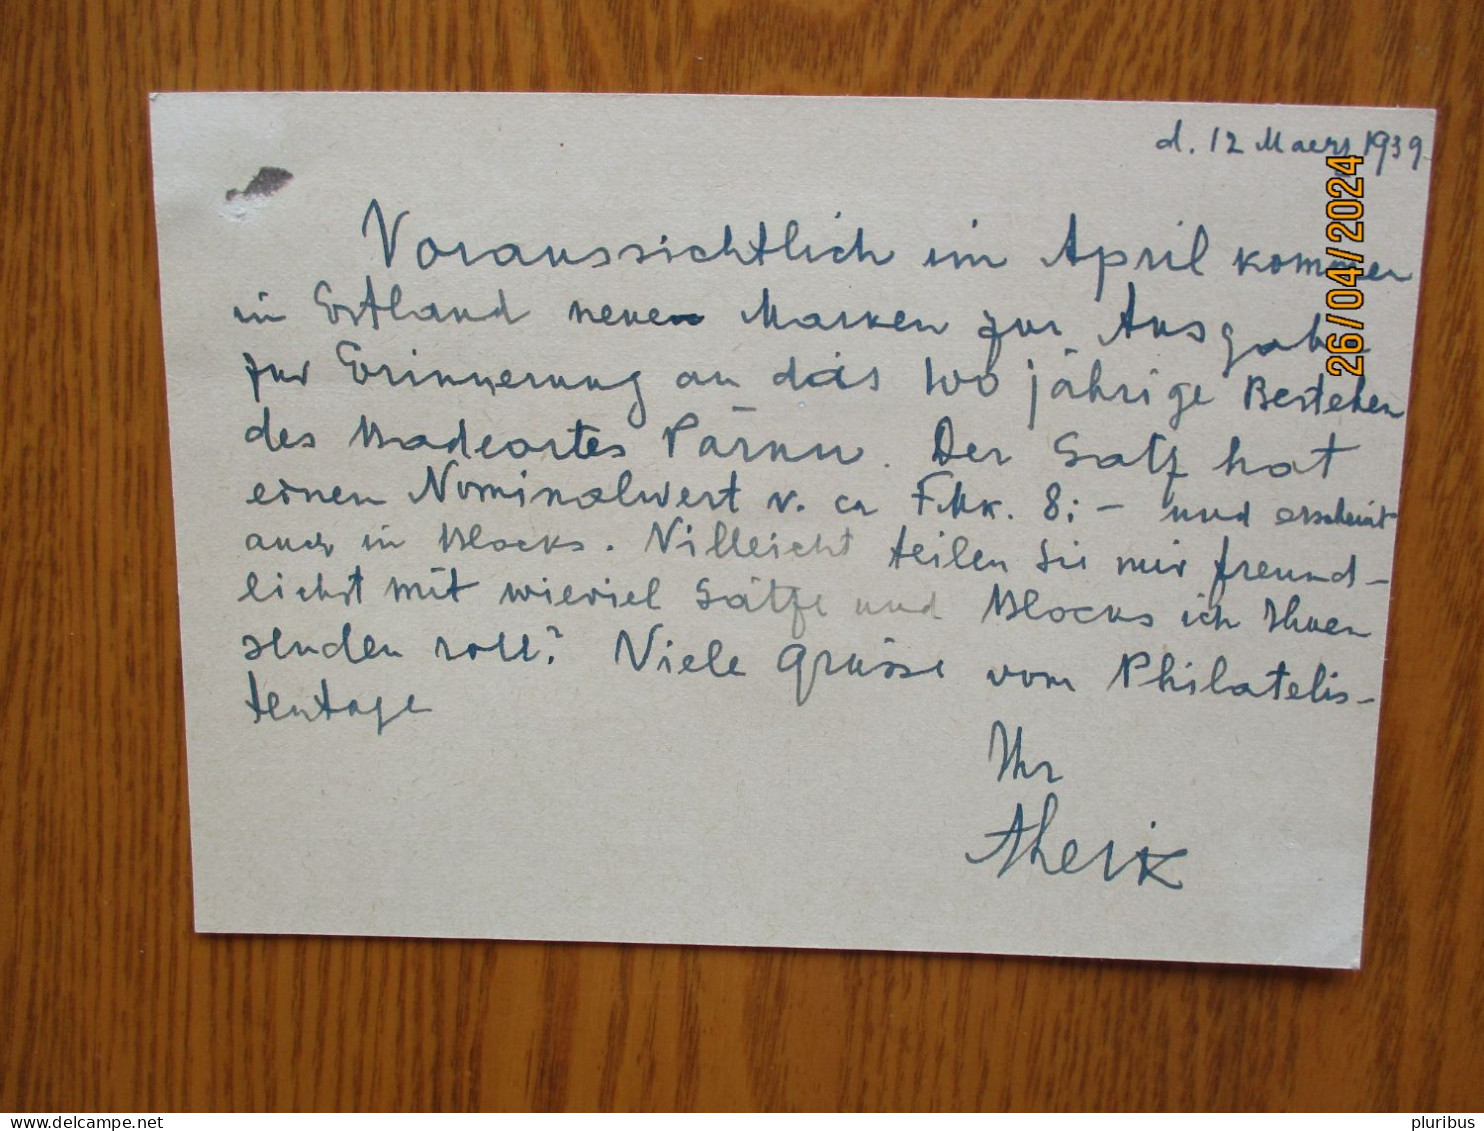 d. 12 Maerz 1939.
Voraussichtlich im April kommen
in Estland neue Marken zur Ausgabe
zur Erinnerung an das 100 jährige Bestehen
des Badeortes Pärnu. Der Satz hat
einen Nominalwert v. ca Fmk. 8:- und erscheint
auch in Blocks. Villeicht teilen Sie mir freund-
lichst mit wieviel Sätze und Blocks ich Ihnen
senden soll? Viele Grüsse vom Philatelis-
tentage
Ihr
26/04/2024
www.delcampe.net
pluribus